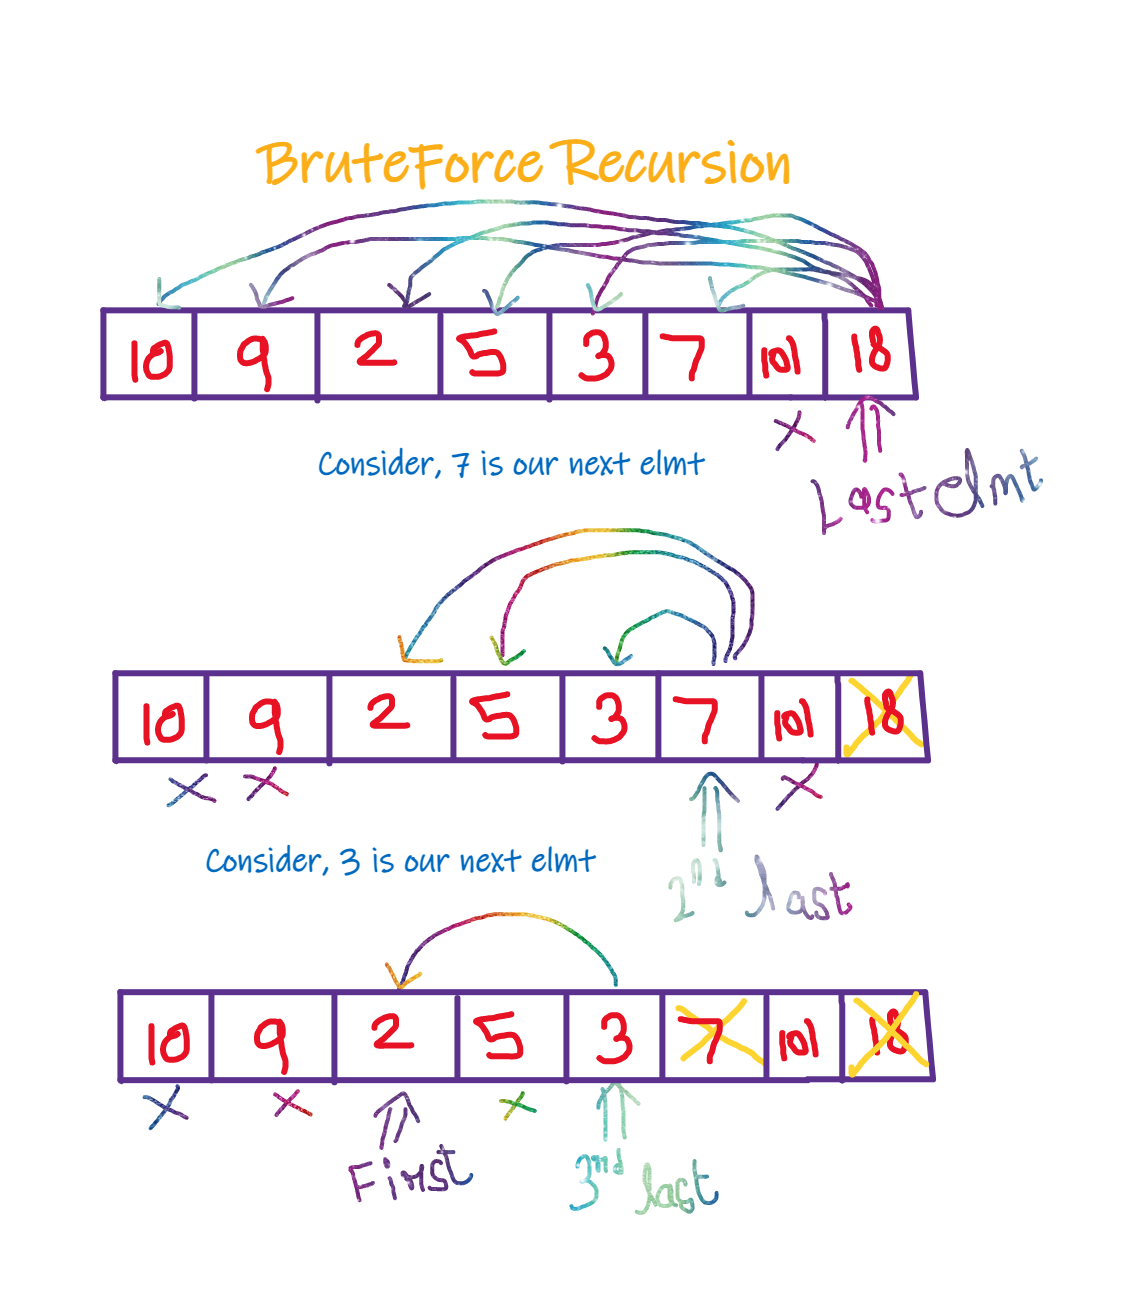 BruteForce Recursion
10 9 2 5 3 7 101 18
Consider, 7 is our next elmt
Last elmt
10 9 2 5 3 7 101 18
2nd last
Consider, 3 is our next elmt
10 9 2 5 3 7 101 18
First
3rd last